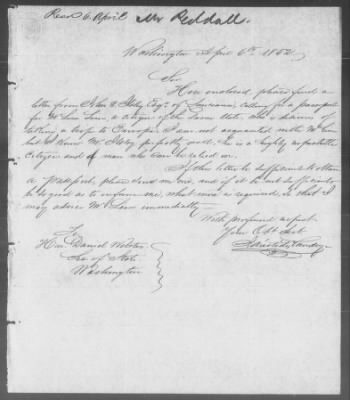 Recd 6. April Mr Reddall.
Washington April 6th 1852
Sir
Here enclosed, please find a
letter from John Ilsley Esqr. of Louisiana, asking for a passport
for Mr Law, a citizen of the same state. He is desirous of
taking a trip to Europe. I am not acquainted with Mr Law
but I know Mr Ilsley perfectly well; he is a highly respectable
citizen and a man who can be relied on.
If the letter be sufficient to obtain
a passport, please send me one, and if it be not sufficient
be so good as to inform me, what more is required, so that I
may advise Mr Law immediately.
With profound respect
Your Obt Svt
To
Hon Daniel Webster
Sec of State
Washington